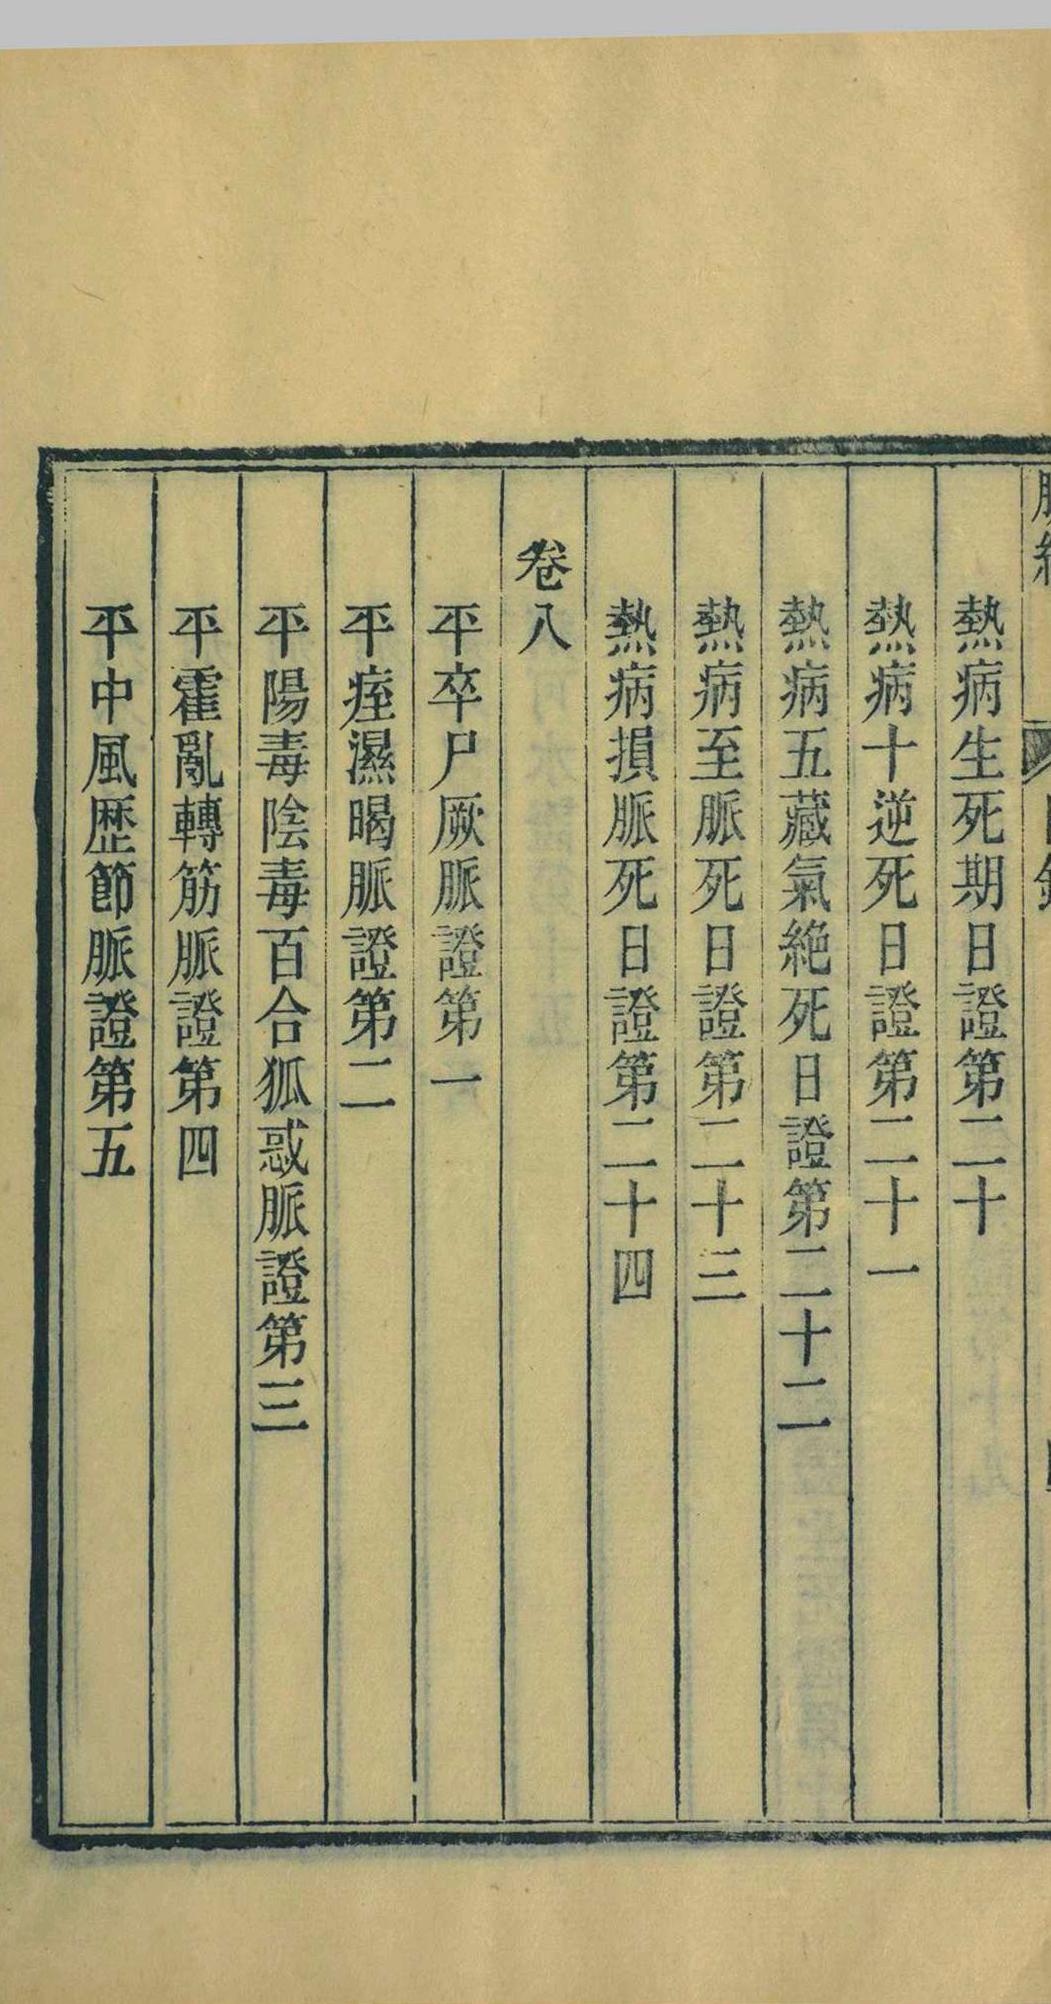 熱病生死期日證第二十
熱病十逆死日證第二十一
熱病五藏氣絶死日證第二十二
熱病至脈死日證第二十三
熱病損脈死日證第二十四
卷八
平卒尸厥脈證第一
平痓濕暍脈證第二
平陽毒陰毒百合狐惑脈證第三
平霍亂轉筋脈證第四
平中風歴節脈證第五